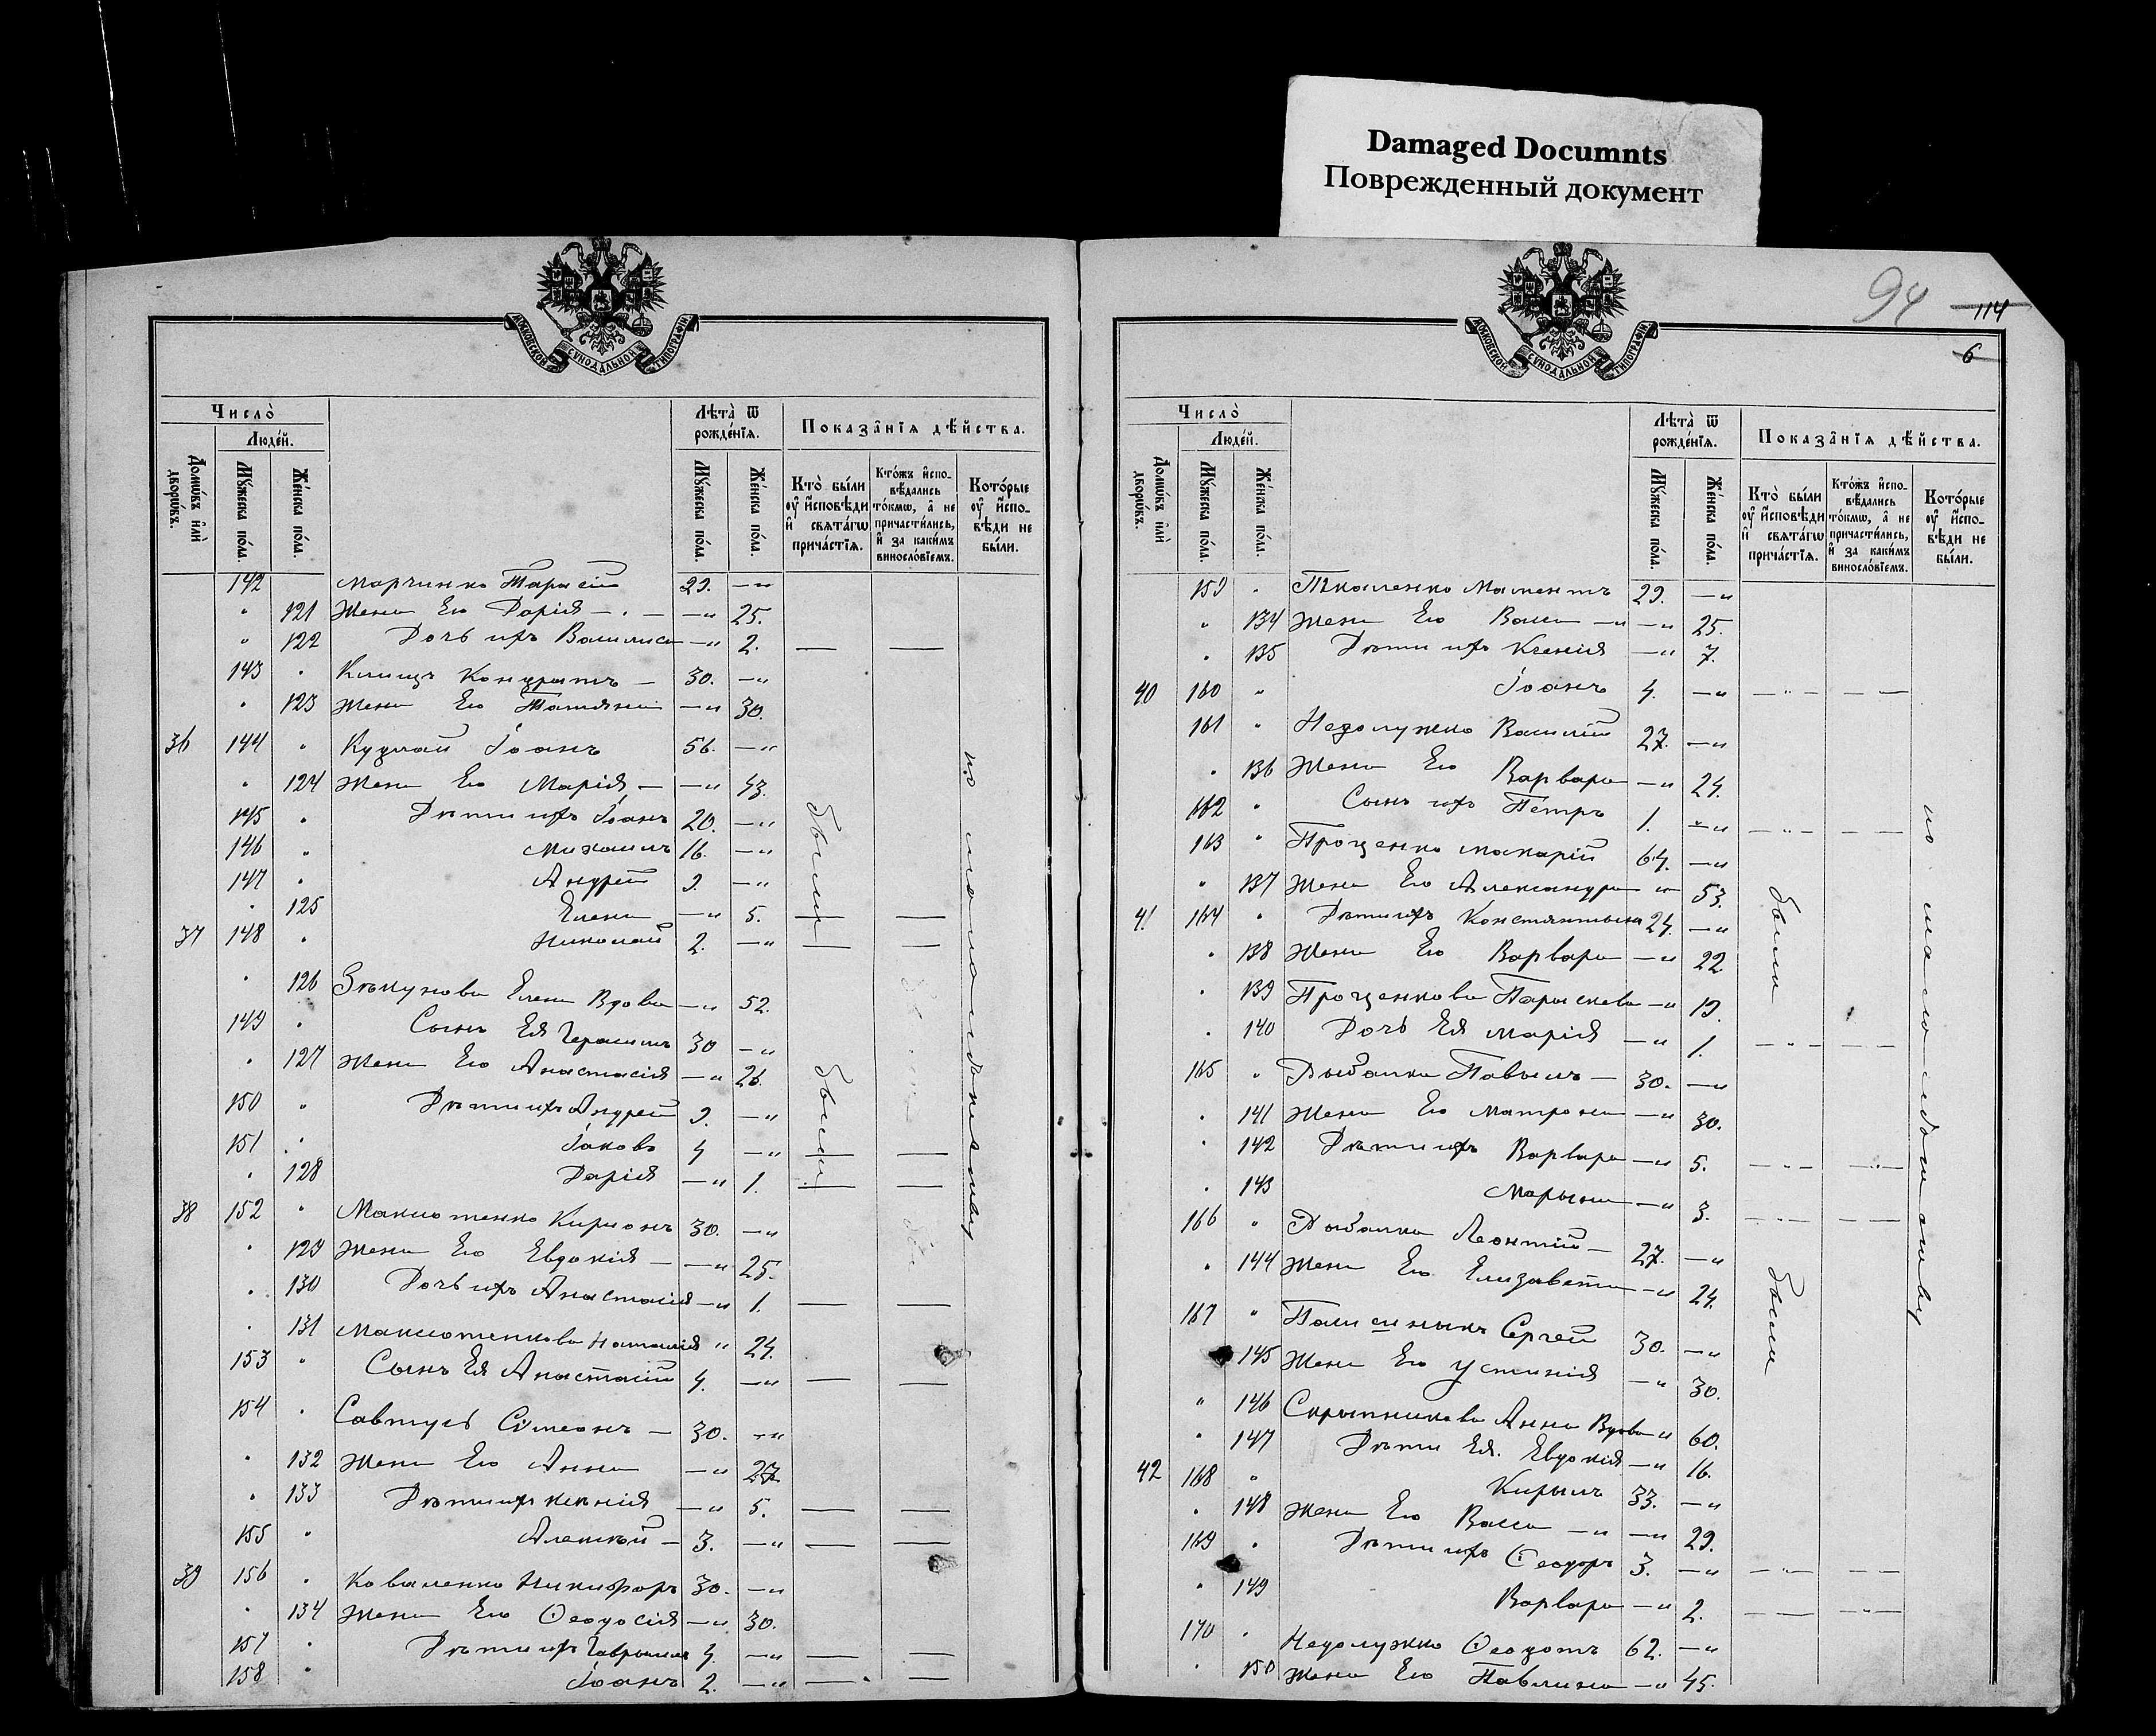 Damaged Documnts
Поврежденный документ
94 114
6
МОСКОВСКОЙ СѴНОДАЛЬНОЙ ТИПОГРАФІИ
Число̀
Людей.
Домѡвъ и҆лѝ дворѡвъ.
Мꙋжеска по́ла.
Же́нска по́ла.
Лѣта̀ ѿ рожде́нїѧ.
Мꙋжеска по́ла.
Же́нска по́ла.
Показа̑нїѧ дѣ́йства.
Кто̀ бы́ли ᲂу҆ и҆сповѣди и҆ свѧта́гѡ прича́стїѧ.
Кто́жъ и҆спо⸗вѣдались то́кмѡ, а҆ не причасти́лись, и҆ за каки́мъ винослові́емъ.
Кото́рые ᲂу҆ и҆спо⸗вѣди не бы́ли.
142 Марченко Тарасій 29. —"
" 121 Жена Его Дарія — " 25.
" 122 Дочь ихъ Василиса —" 2. — —
143 " Клищъ Кондратъ — 30. —"
" 123 Жена Его Татіяна —" 30.
36 144 " Кудлай Іоанъ 56. —"
" 124 Жена Его Марія — —" 43.
145 " Дѣти ихъ Іоанъ 20. —"
146 " Михаилъ 16. —"
147 " Андрей 9. —"
" 125 Елена —" 5. — —
37 148 " Николай 2. —" — —
" 126 Елена Вдова —" 52.
149 " Сынъ Ея Герасимъ 30 —"
" 127 Жена Его Анастасія —" 26.
150 " Дѣти ихъ Андрей 9. —"
151 " Іаковъ 4 —" — —
" 128 Дарія —" 1. — —
38 152 " Максютенко Киріонъ 30. —"
" 129 Жена Его Евдокія — —" 25.
" 130 Дочь ихъ Анастасія —" 1. — —
" 131 Максютенкова Наталія " 24.
153 " Сынъ Ея Анастасій 4. —" — —
154 " Савтусь Сѵмеонъ — 30. —"
" 132 Жена Его Анна —" 27.
" 133 Дѣти ихъ Ксенія —" 5. — —
155 " Алексѣй — 3. —" — —
39 156 " Коваленко Никифоръ 30. —"
" 134 Жена Его Ѳеодосія —" 30.
157 " Дѣти ихъ Гавріилъ 4. —" — —
158 " Іоанъ 2. —" — —
были
были
по
Число̀
Людей.
Домѡвъ и҆лѝ дворѡвъ.
Мꙋжеска по́ла.
Же́нска по́ла.
Лѣта̀ ѿ рожде́нїѧ.
Мꙋжеска по́ла.
Же́нска по́ла.
Показа̑нїѧ дѣ́йства.
Кто̀ бы́ли ᲂу҆ и҆сповѣди и҆ свѧта́гѡ прича́стїѧ.
Кто́жъ и҆спо⸗вѣдались то́кмѡ, а҆ не причасти́лись, и҆ за каки́мъ винослові́емъ.
Кото́рые ᲂу҆ и҆спо⸗вѣди не бы́ли.
159 " Ткаленко Мамантъ 29. —"
" 134 Жена Его Васса —" —" 25.
" 135 Дѣти ихъ Ксенія —" 7.
40 160 " Іоанъ 4. —" — " — — —
161 " Недолужко Василій 27. —"
" 136 Жена Его Варвара —" 24.
162 " Сынъ ихъ Петръ 1. —" — " — — —
163 " Проценко Макарій 64. —"
" 137 Жена Его Александра —" 53.
41 164 " Дѣти ихъ Константинъ 24. —"
" 138 Жена Его Варвара —" 22
" 139 Проценкова Параскева —" 19.
" 140 Дочь Ея Марія —" 1. — " — — —
165 " Рыбалка Павылъ — 30. —"
" 141 Жена Его Матрона —" 30.
" 142 Дѣти ихъ Варвара —" 5. — " — — " —
" 143 Марына —" 3. — " — — —
166 " Рыбалка Леонтій — 27. —"
" 144 Жена Его Елизавета —" 24.
167 " Сергей 30. —"
145 Жена Его Устинія —" 30.
" 146 Скрыпникова Анна Вдова " 60.
" 147 Дѣти Ея. Евдокія —" 16.
42 168 " Кирылъ 33. —"
" 148 Жена Его Васса —" —" 29.
169 " Дѣти ихъ Ѳеодоръ 3. —" — " — — —
" 149 Варвара —" 2. — — — " —
170 " Недолужко Ѳеодотъ 62. —"
" 150 Жена Его Павлина —" 45.
были
были
по